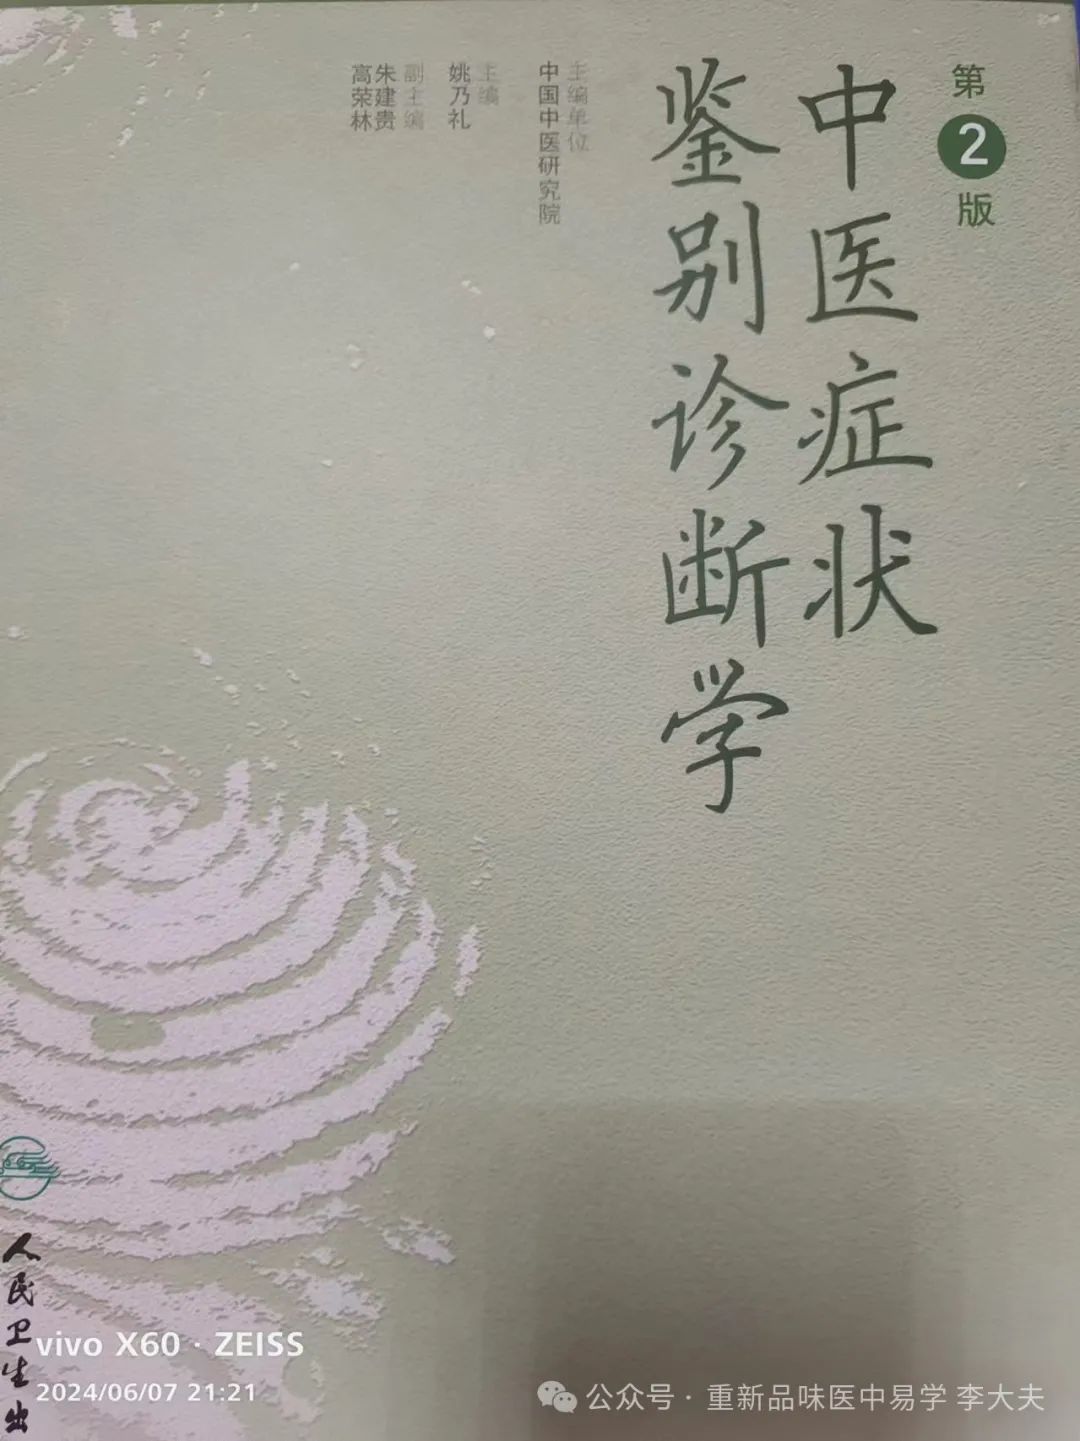 第
2
版
中医症状
鉴别诊断学
主编单位
中国中医研究院
主编
姚乃礼
副主编
朱建贵
高荣林
人民卫生出
vivo X60 · ZEISS
2024/06/07 21:21
公众号 · 重新品味医中易学 李大夫